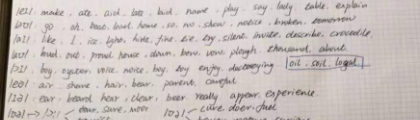 /eɪ/ make . ate . aid . late . bad . name . play . say . lady . table . explain
/əʊ/ go . oh . boat . bowl . home . so . no . show . notice . broken . tomorrow
/aɪ/ like . I . ice . light . hide . fine . die . cry . silent . invite . describe . crocodile
/aʊ/ out . proud . house . down . how . plough . thousand . about
/ɔɪ/ boy . oyster . voice . noise . boy . enjoy . destroying oil . soil . loyal
/eə/ air . share . hair . bear . parent . careful
/ɪə/ ear . beard . hear . clear . beer . really . appear . experience
/ʊə/ → /ɔ:/ sure . moor /ʊə/ cure